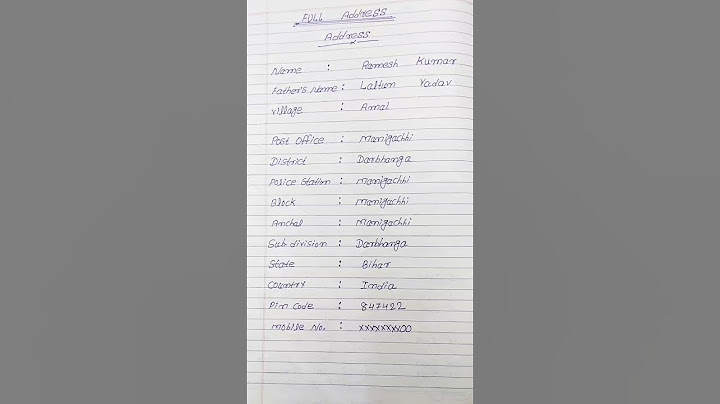 FULL Address
Address
Name : Ramesh Kumar
Father's Name : Laltun Yadav
Village : Amal
Post Office : Manigachhi
District : Darbhanga
Police Station : Manigachhi
Block : Manigachhi
Anchal : Manigachhi
Sub division : Darbhanga
State : Bihar
Country : India
Pin Code : 847422
Mobile No. : xxxxxxxx00